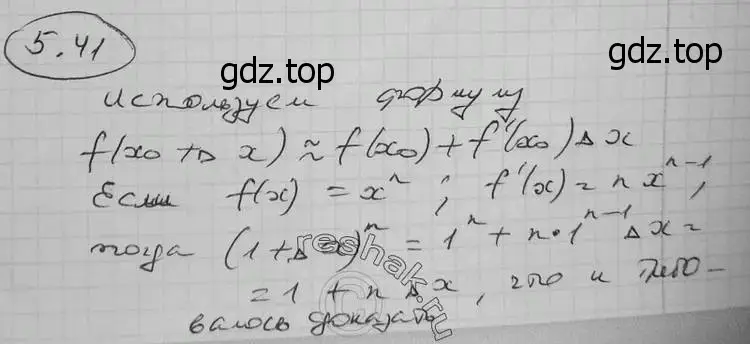 5.41
gdz.top
gdz.top
используем формулу
f(x₀ + Δ x) ≈ f(x₀) + f'(x₀) Δ x
Если f(x) = xⁿ ; f'(x) = n xⁿ⁻¹ ;
тогда (1 + Δ x)ⁿ = 1ⁿ + n · 1ⁿ⁻¹ Δ x =
= 1 + n Δ x , что и требо-
валось доказать
reshak.ru